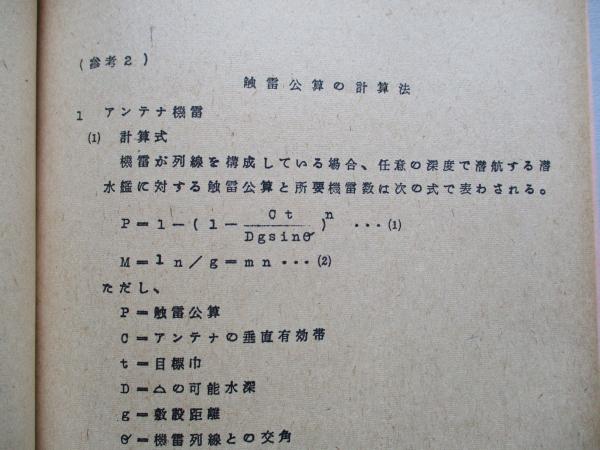 (参考2)
触雷公算の計算法
1 アンテナ機雷
(1) 計算式
機雷が列線を構成している場合、任意の深度で潜航する潜
水艦に対する触雷公算と所要機雷数は次の式で表わされる。
P=1-(1-Ct/Dgsinθ)^n ・・・(1)
M=ln/g=mn・・・(2)
ただし、
P=触雷公算
C=アンテナの垂直有効帯
t=目標巾
D=△の可能水深
g=敷設距離
θ=機雷列線との交角